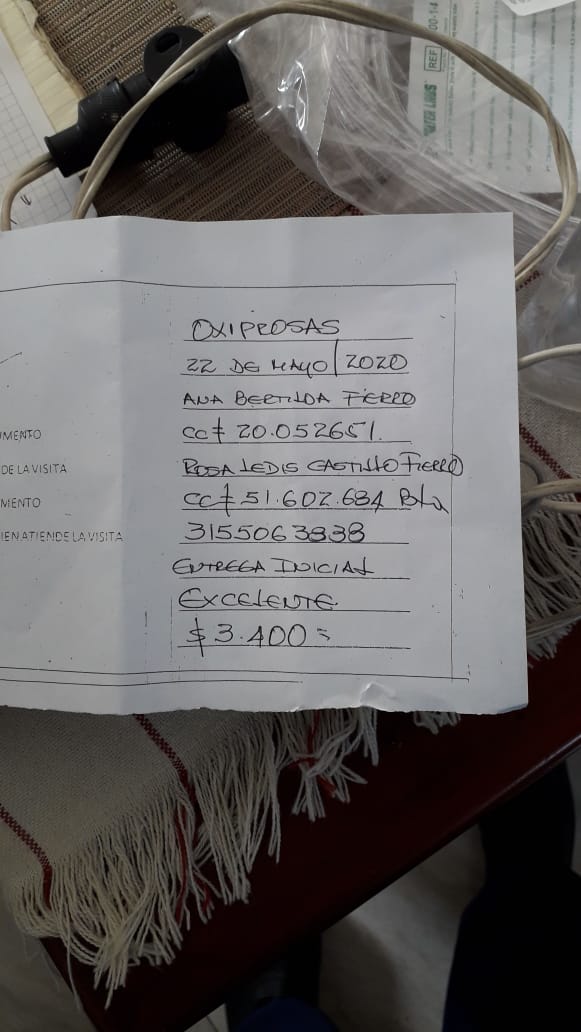 REF 00-14
OXIPROSAS
22 DE MAYO/2020
ANA BERTILDA FIERRO
CC# 20.052651.
UMENTO
DE LA VISITA ROSA LEDIS CASTILLO FIERRO
MENTO CC# 51.602.684 Bta
IEN ATIENDE LA VISITA 3155063838
ENTREGA INICIAL
EXCELENTE.
$ 3.400=